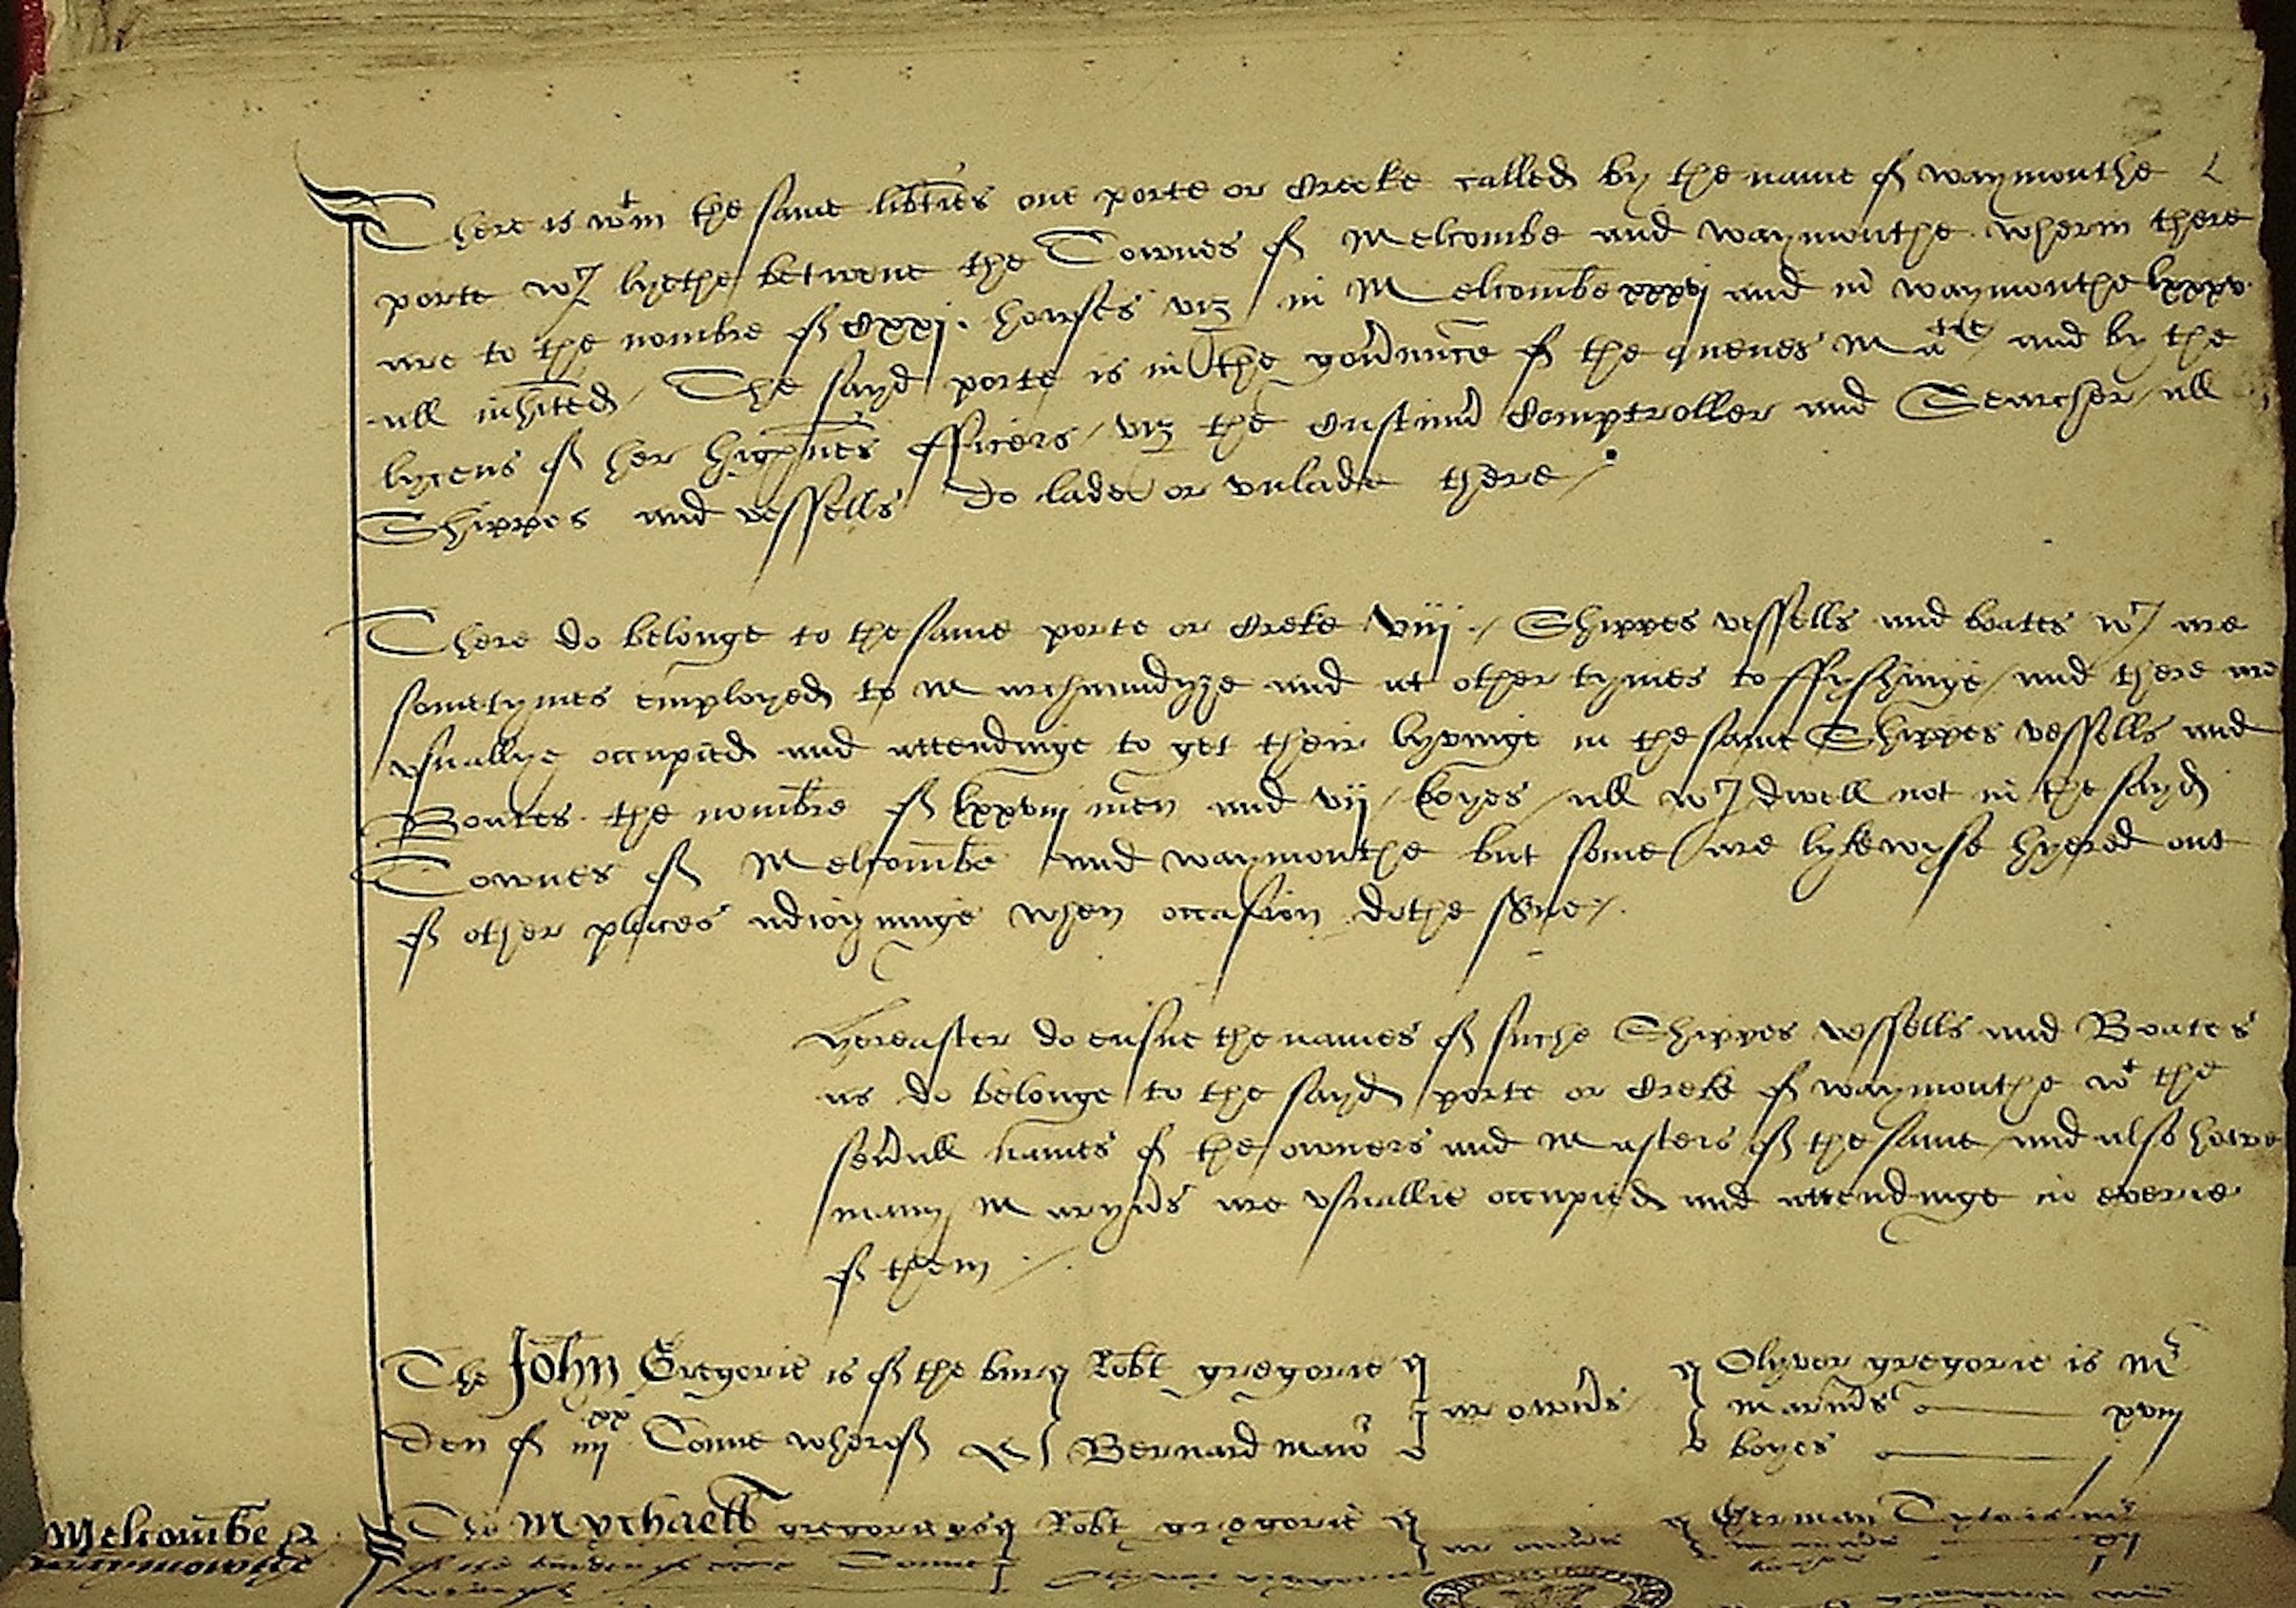 There is wtin the same libties one porte or Creeke called by the name of waymouthe
porte wch lyethe betwene the Townes of Melcombe and waymouthe wherin there
are to the nombre of Cxxj. howses viz in Melcombe xxxvj and in waymouthe lxxxv
all inhited / The sayd porte is in the gounnce of the quenes Matie and by the
lycens of her highnes officers / viz the Custimr Comptroller and Searcher / all
Shippes and vessells do lade or vnlade there /.
There do belonge to the same porte or Creke viij / Shippes vessells and boates wch are
sometymes employed to Marchaundyze and at other tymes to ffyshinge / and there are
vsuallye occupied and attendinge to get their lyvinge in the same Shippes vessells and
Boates the nombre of lxxviij men and vij / boyes / all wch dwell not in the sayd
Townes of Melcombe and waymouthe but some are lykewyse hyered out
of other places adioyninge when occasion dothe sue /.
hereafter do ensue the names of suche Shippes vessells and Boates
as do belonge to the sayd porte or Creke of waymouthe wt the
seuall names of the owners and Masters of the same and also howe
many Maryns are vsuallie occupied and attendinge in everie
of them /.
The John Gregorie is of the bur Robt gregorie ar ownrs Olyver gregorie is Mr
den of iiij xx Tonne wherof Bernard Mawr marins xviij
boyes j
The Mychaell gregorie Robt gregorie German
Melcombe &
waymowthe Tonne